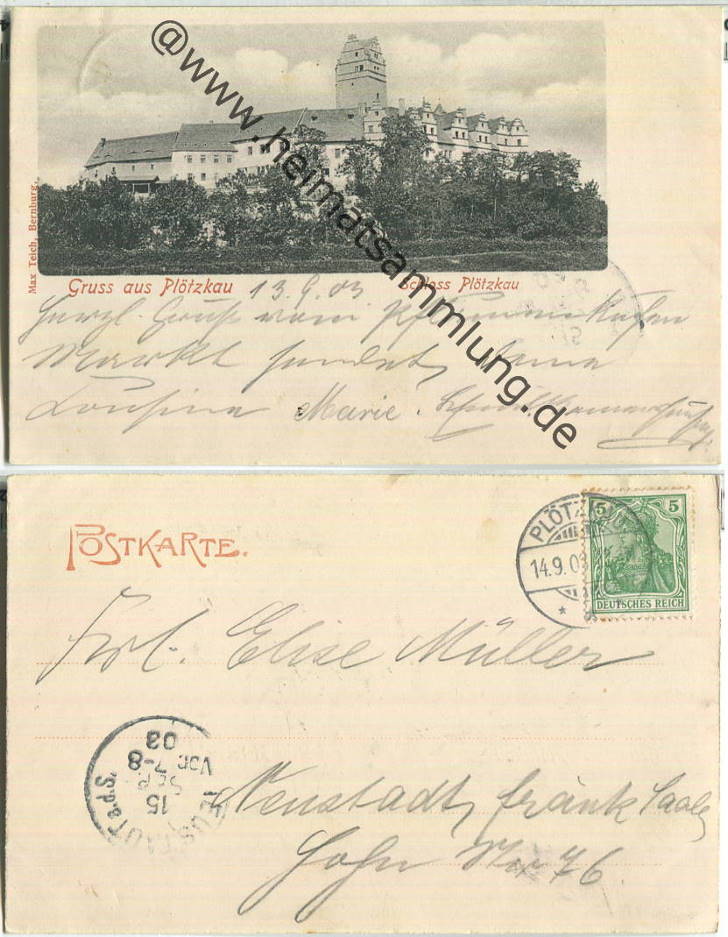 @www.heimatsammlung.de
Max Teich, Bernburg.
Gruss aus Plötzkau
13.9.03
Schloss Plötzkau
Herzl. Gruß vom
Markt sendet
Cousine Marie.
POSTKARTE.
PLÖTZ
14.9.03
5 5
DEUTSCHES REICH
Frl. Elise Müller
NEUSTADT a.d.S.
15
SEP.
Vor. 7-8
03
Neustadt, fränk Saale
Hohn Nr 76